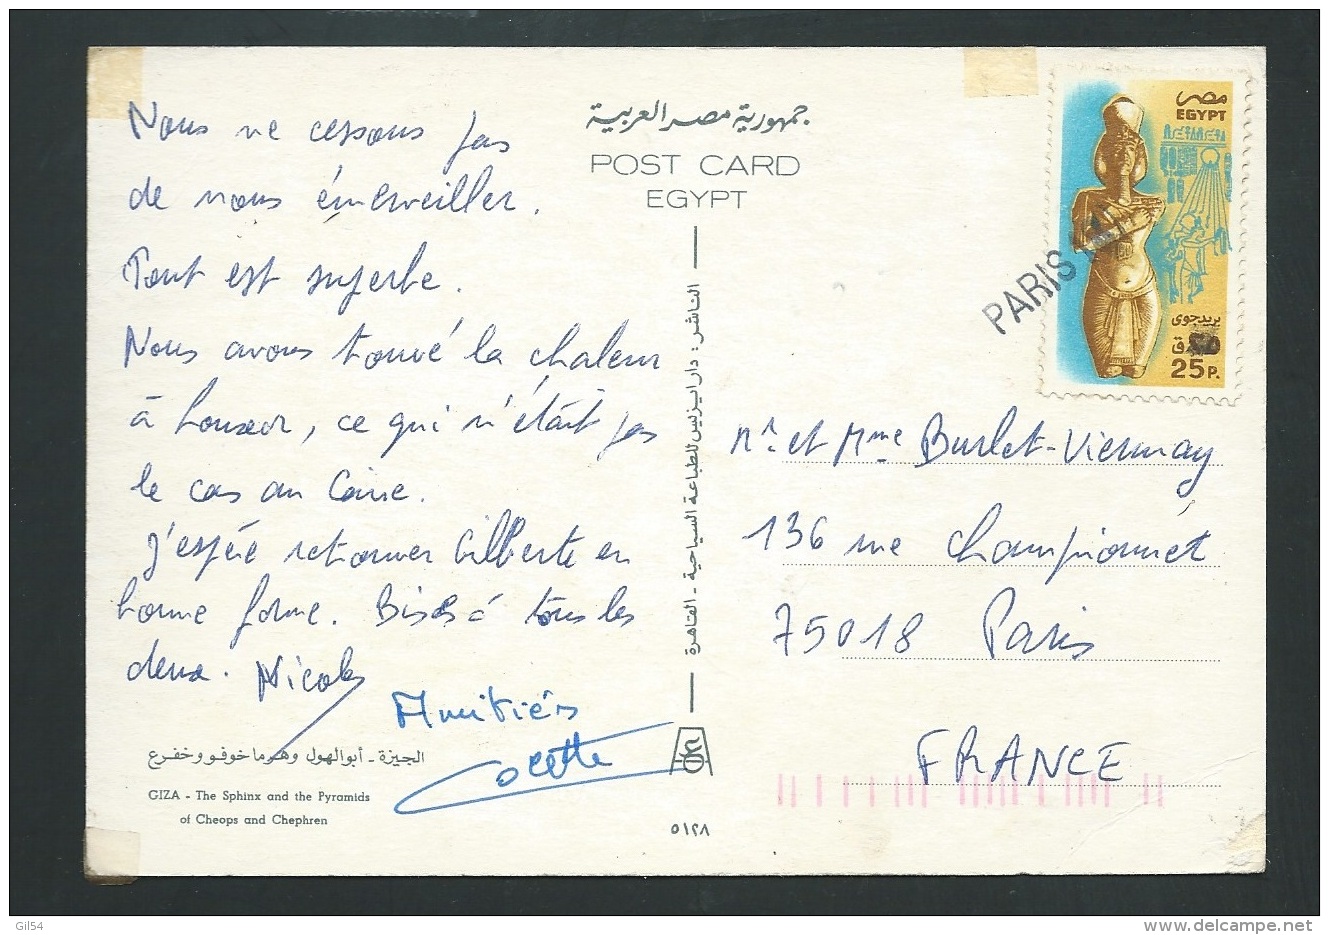 Nous ne cessons pas
de nous émerveiller.
Tout est superbe.
Nous avons trouvé la chaleur
à Louxor, ce qui n'était pas
le cas au Caire.
J'espère retrouver Gilberte en
bonne forme. Bises à tous les
deux. Nicolas
Amitiés
Colette
الجيزة - أبو الهول وهرما خوفو وخفرع
GIZA - The Sphinx and the Pyramids
of Cheops and Chephren
جمهورية مصر العربية
POST CARD
EGYPT
الناشر : دار ايزيس للطباعة السياحية - القاهرة
٥١٢٨
مصر
EGYPT
بريد جوى
25 P.
PARIS
Mr et Mme Burlet-Viennay
136 rue Championnet
75018 Paris
FRANCE
Gil54
delcampe.net